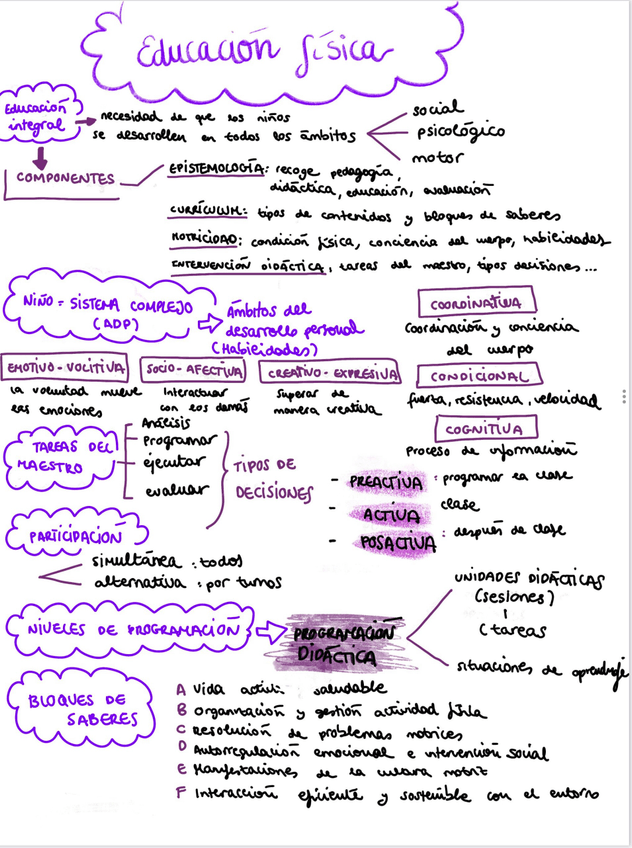 Educación física
Educación integral → necesidad de que los niños
se desarrollen en todos los ámbitos
social
psicológico
motor
COMPONENTES
EPISTEMOLOGÍA: recoge pedagogía,
didáctica, educación, evaluación
CURRÍCULUM: tipos de contenidos y bloques de saberes
MOTRICIDAD: condición física, conciencia del cuerpo, habilidades
INTERVENCIÓN DIDÁCTICA, tareas del maestro, tipos decisiones...
NIÑO = SISTEMA COMPLEJO
(ADP)
Ámbitos del
desarrollo personal
(Habilidades)
COORDINATIVA
Coordinación y conciencia
del cuerpo
EMOTIVO - VOLITIVA
la voluntad mueve
las emociones
SOCIO - AFECTIVA
Interactuar
con los demás
CREATIVO - EXPRESIVA
Superar de
manera creativa
CONDICIONAL
fuerza, resistencia, velocidad
COGNITIVA
Proceso de información
TAREAS DEL
MAESTRO
Análisis
programar
ejecutar
evaluar
TIPOS DE
DECISIONES
- PREACTIVA : programar la clase
- ACTIVA : clase
- POSACTIVA : después de clase
PARTICIPACIÓN
simultánea : todos
alternativa : por turnos
NIVELES DE PROGRAMACIÓN ⇒ PROGRAMACIÓN
DIDÁCTICA
UNIDADES DIDÁCTICAS
(sesiones)
(tareas
situaciones de aprendizaje
BLOQUES DE
SABERES
A Vida activa saludable
B Organización y gestión actividad física
C Resolución de problemas motrices
D Autorregulación emocional e intervención social
E Manifestaciones de la cultura motriz
F Interacción eficiente y sostenible con el entorno